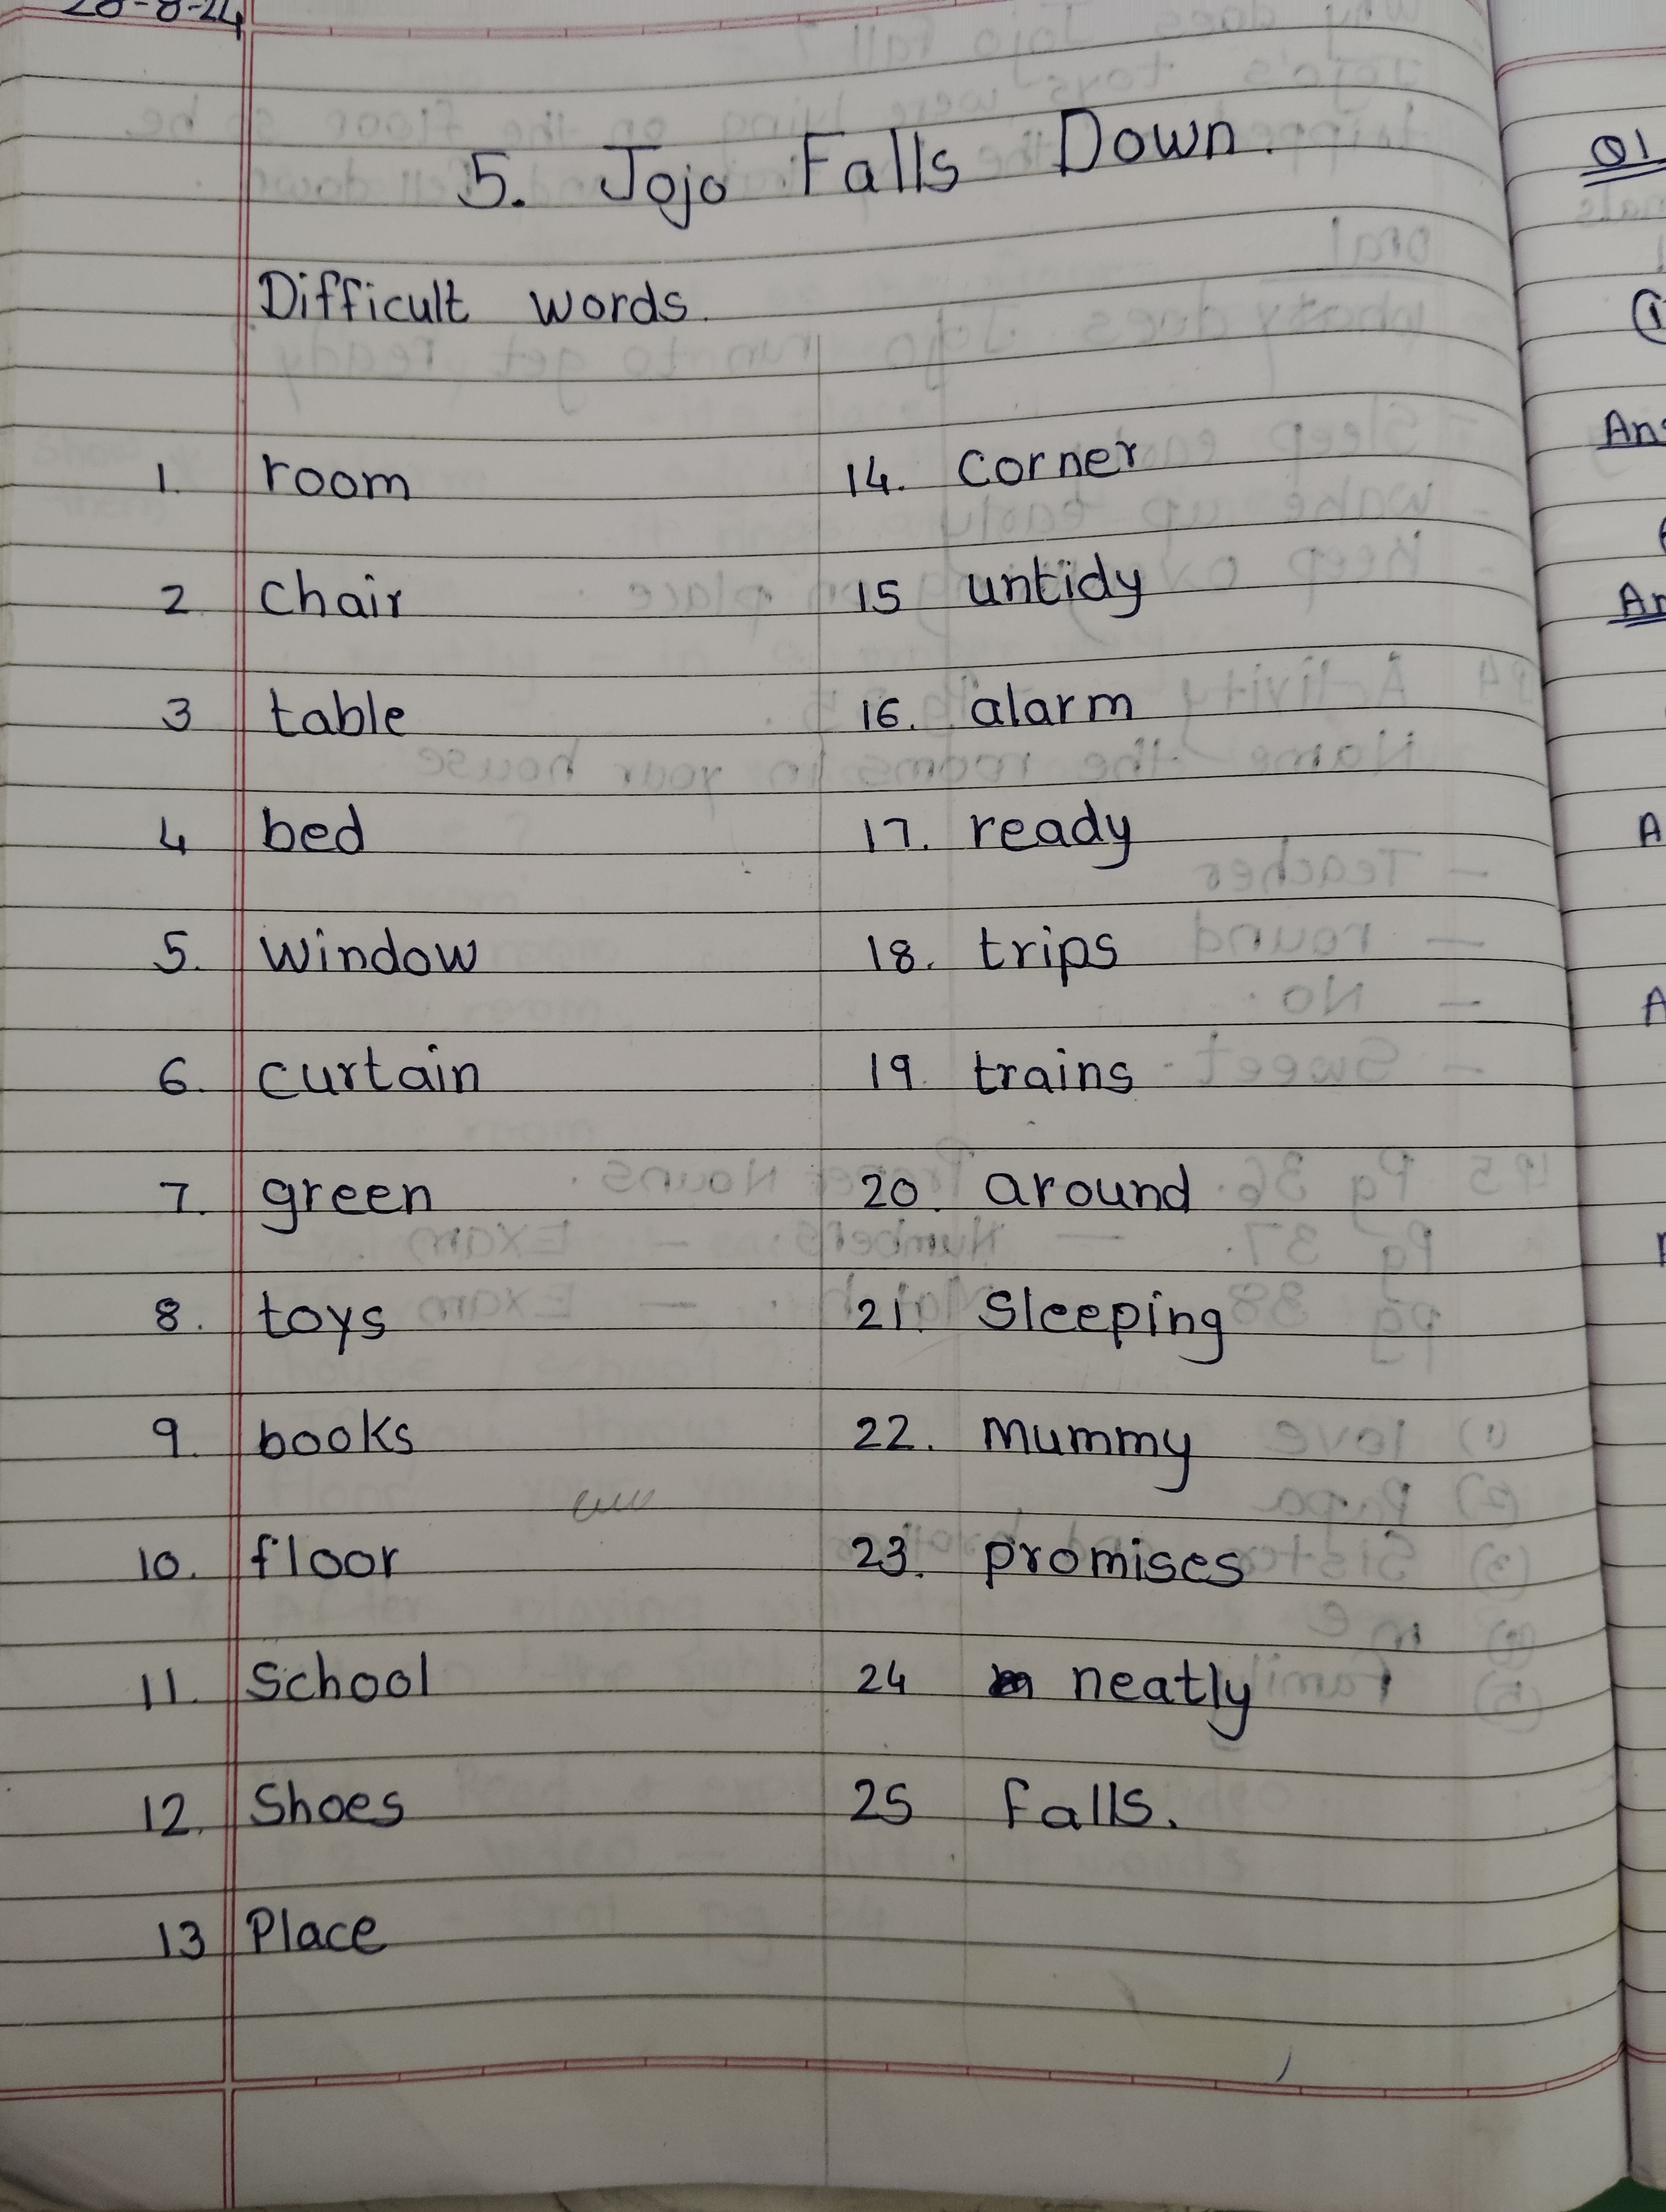 28-8-24
5. Jojo Falls Down.
Difficult words.
1. room
2. Chair
3 table
4 bed
5. Window
6. curtain
7. green
8. toys
9. books
10. floor
11. School
12. Shoes
13 Place
14. Corner
15 untidy
16. alarm
17. ready
18. trips
19. trains
20. around
21. Sleeping
22. Mummy
23. promises
24 neatly
25 falls.
Q1
Ans